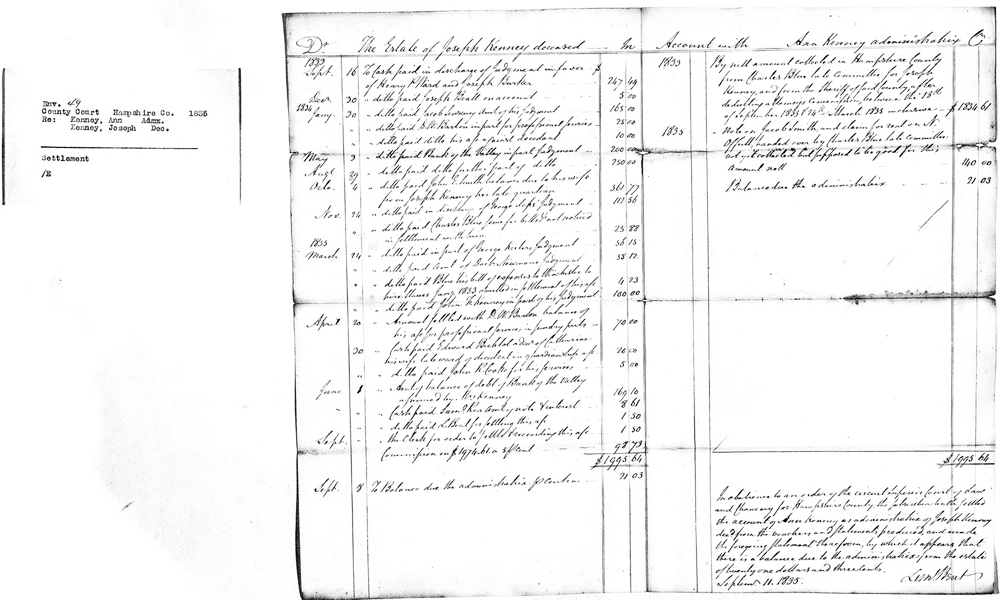 Env. 49
County Court Hampshire Co. 1835
Re: Kenney, Ann Admx.
Kenney, Joseph Dec.
Settlement
/E
Dr The Estate of Joseph Kenney deceased In
1833
Sept. 16 To Cash paid in discharge of Judgment in favor $
of Henry P. Ward and Joseph 247 49
Decr 30 " ditto paid Joseph on account 5 00
1834
Jany. 30 " ditto paid Jacob amt. of his Judgment 165 00
" ditto paid D. W. Barton in part for professional services 25 00
" ditto paid ditto his a/c against decedant 10 00
May 3 " ditto paid Bank of the Valley in part Judgment 200 00
Augt 29 " ditto paid ditto further part of ditto 250 00
Octo. 4 " ditto paid John Smith balance due to his wife
from Joseph Kenney her late guardian 361 77
Nov. 24 " ditto paid in discharge of George Judgment 113 56
" ditto paid Charles Blue for not noticed
in settlement with him 25 88
1835
March 24 " ditto paid in part of George Judgment 56 15
" ditto paid amt. of Newmans Judgment 58 12
" ditto paid Blue his bill of expenses to Winchester to
hire slaves Jany. 1833 omitted in settlement of his a/c 4 23
" ditto paid John Kenney in part of his Judgment 100 00
April 20 " Amount settled with D. W. Barton balance of
his a/c for professional services in 70 00
30 " Cash paid Edward admr of Catherine
his wife late ward of decedent in guardianship a/c 20 00
" ditto paid John R. Cooke for his services 5 00
June 1 " Amt. of balance of debt of Bank of the Valley
assumed by Kenney 169 10
" Cash paid Saml. amt. of note & interest 8 61
" ditto paid for settling this a/c 1 50
Sept. " the Clerk for order to settle & recording this a/c 1 50
Commission on $1974.61 a 5 p Cent 98 73
$ 1995 64
Sept. 8 To Balance due the administratrix p contra 21 03
Account with Ann Kenney administratrix Cr
1833 By nett amount collected in Hampshire County
from Charles Blue late Committee for Joseph
Kenney, and from the Sheriff of said County, after
deducting attorneys Commission, between the 15th
of September 1833 & 24th March 1835 inclusive $ 1834 61
1835 " Note on Jacob Smith and claim for rent on N.
Offutt, handed over by Charles Blue late Committee
not yet collected but supposed to be good for this
amount nett 140 00
Balance due the administratrix 21 03
$ 1995 64
In obedience to an order of the circuit Superior Court of Law
and Chancery for Hampshire County the subscriber settled
the account of Ann Kenney as administratrix of Joseph Kenney
decd from the vouchers and statements produced, and made
the foregoing statement therefrom, by which it appears that
there is a balance due to the administratrix from the estate
of twenty one dollars and three cents.
September 11. 1835.